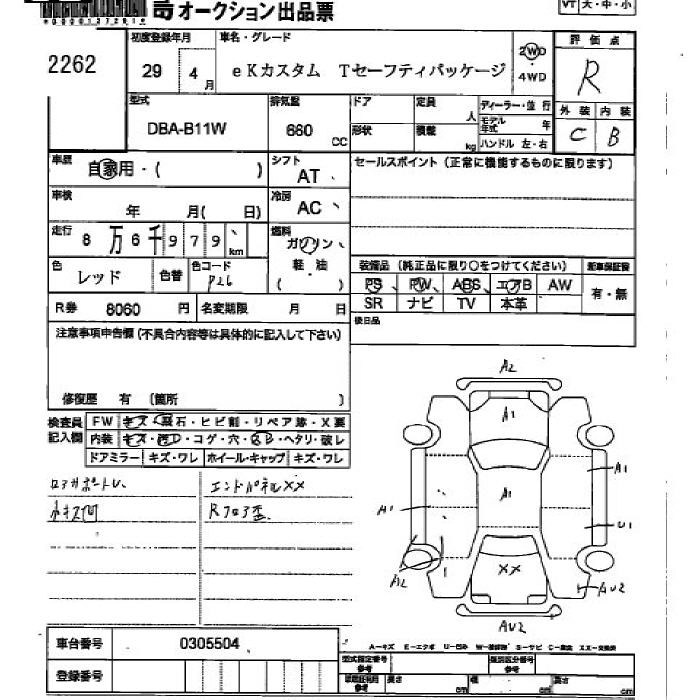 *00001272610*
オークション出品票
VT 大・中・小
2262
初度登録年月
29 4 月
車名・グレード
eKカスタム Tセーフティパッケージ
2WD
・
4WD
評価点
R
外装 内装
C B
型式
DBA-B11W
排気量
660 CC
ドア
形状
定員 人
積載 kg
ディーラー・並行
モデル年式 年
ハンドル 左・右
車歴
自家用・( )
シフト
AT、
セールスポイント (正常に機能するものに限ります)
車検
年 月( 日)
冷房
AC、
走行
8万6千979、km
燃料
ガソリン、
軽・油
( )
色
レッド
色替
色コード
P26
装備品 (純正品に限り○をつけてください)
新車保証書
PS、 PW、 ABS、 エアB AW
SR ナビ TV 本革
有・無
R券 8060 円
名変期限 月 日
後日品
注意事項申告欄 (不具合内容等は具体的に記入して下さい)
修復歴 有 (箇所 )
検査員
記入欄
FW キズ・飛石・ヒビ割・リペア跡・X要
内装 キズ・汚D・コゲ・穴・ ・ヘタリ・破レ
ドアミラー キズ・ワレ ホイール・キャップ キズ・ワレ
コアサポートレ、
エンドパネルXX
小キズ凹
Rフロア歪
A2
A1
A1
A1
A1
U1
A2
XX
AU2
AU2
車台番号 0305504
登録番号
A-キズ E-エクボ U-凹ミ W-補修跡 S-サビ C-腐食 XX-交換済
型式指定番号
参考
類別区分番号
参考
長さ
cm
幅
cm
高さ
cm